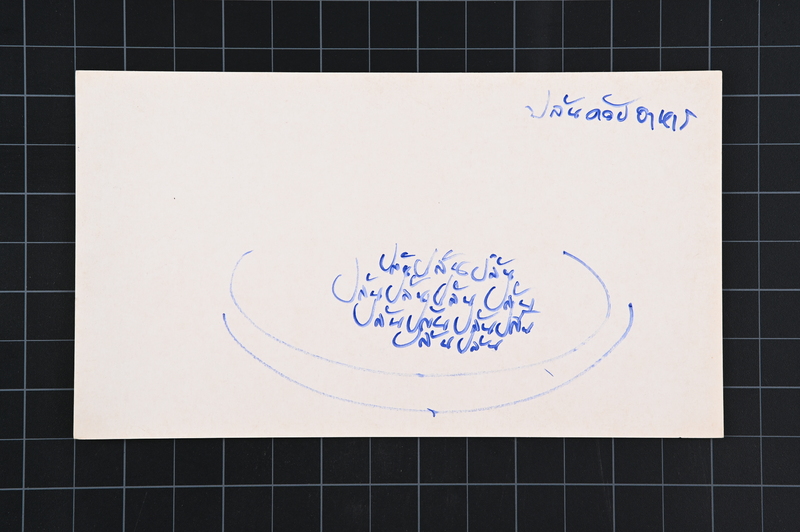 ปล้นด้วยอาหาร
ปล้น ปล้น ปล้น
ปล้น ปล้น ปล้น ปล้น
ปล้น ปล้น ปล้น ปล้น
ปล้น ปล้น